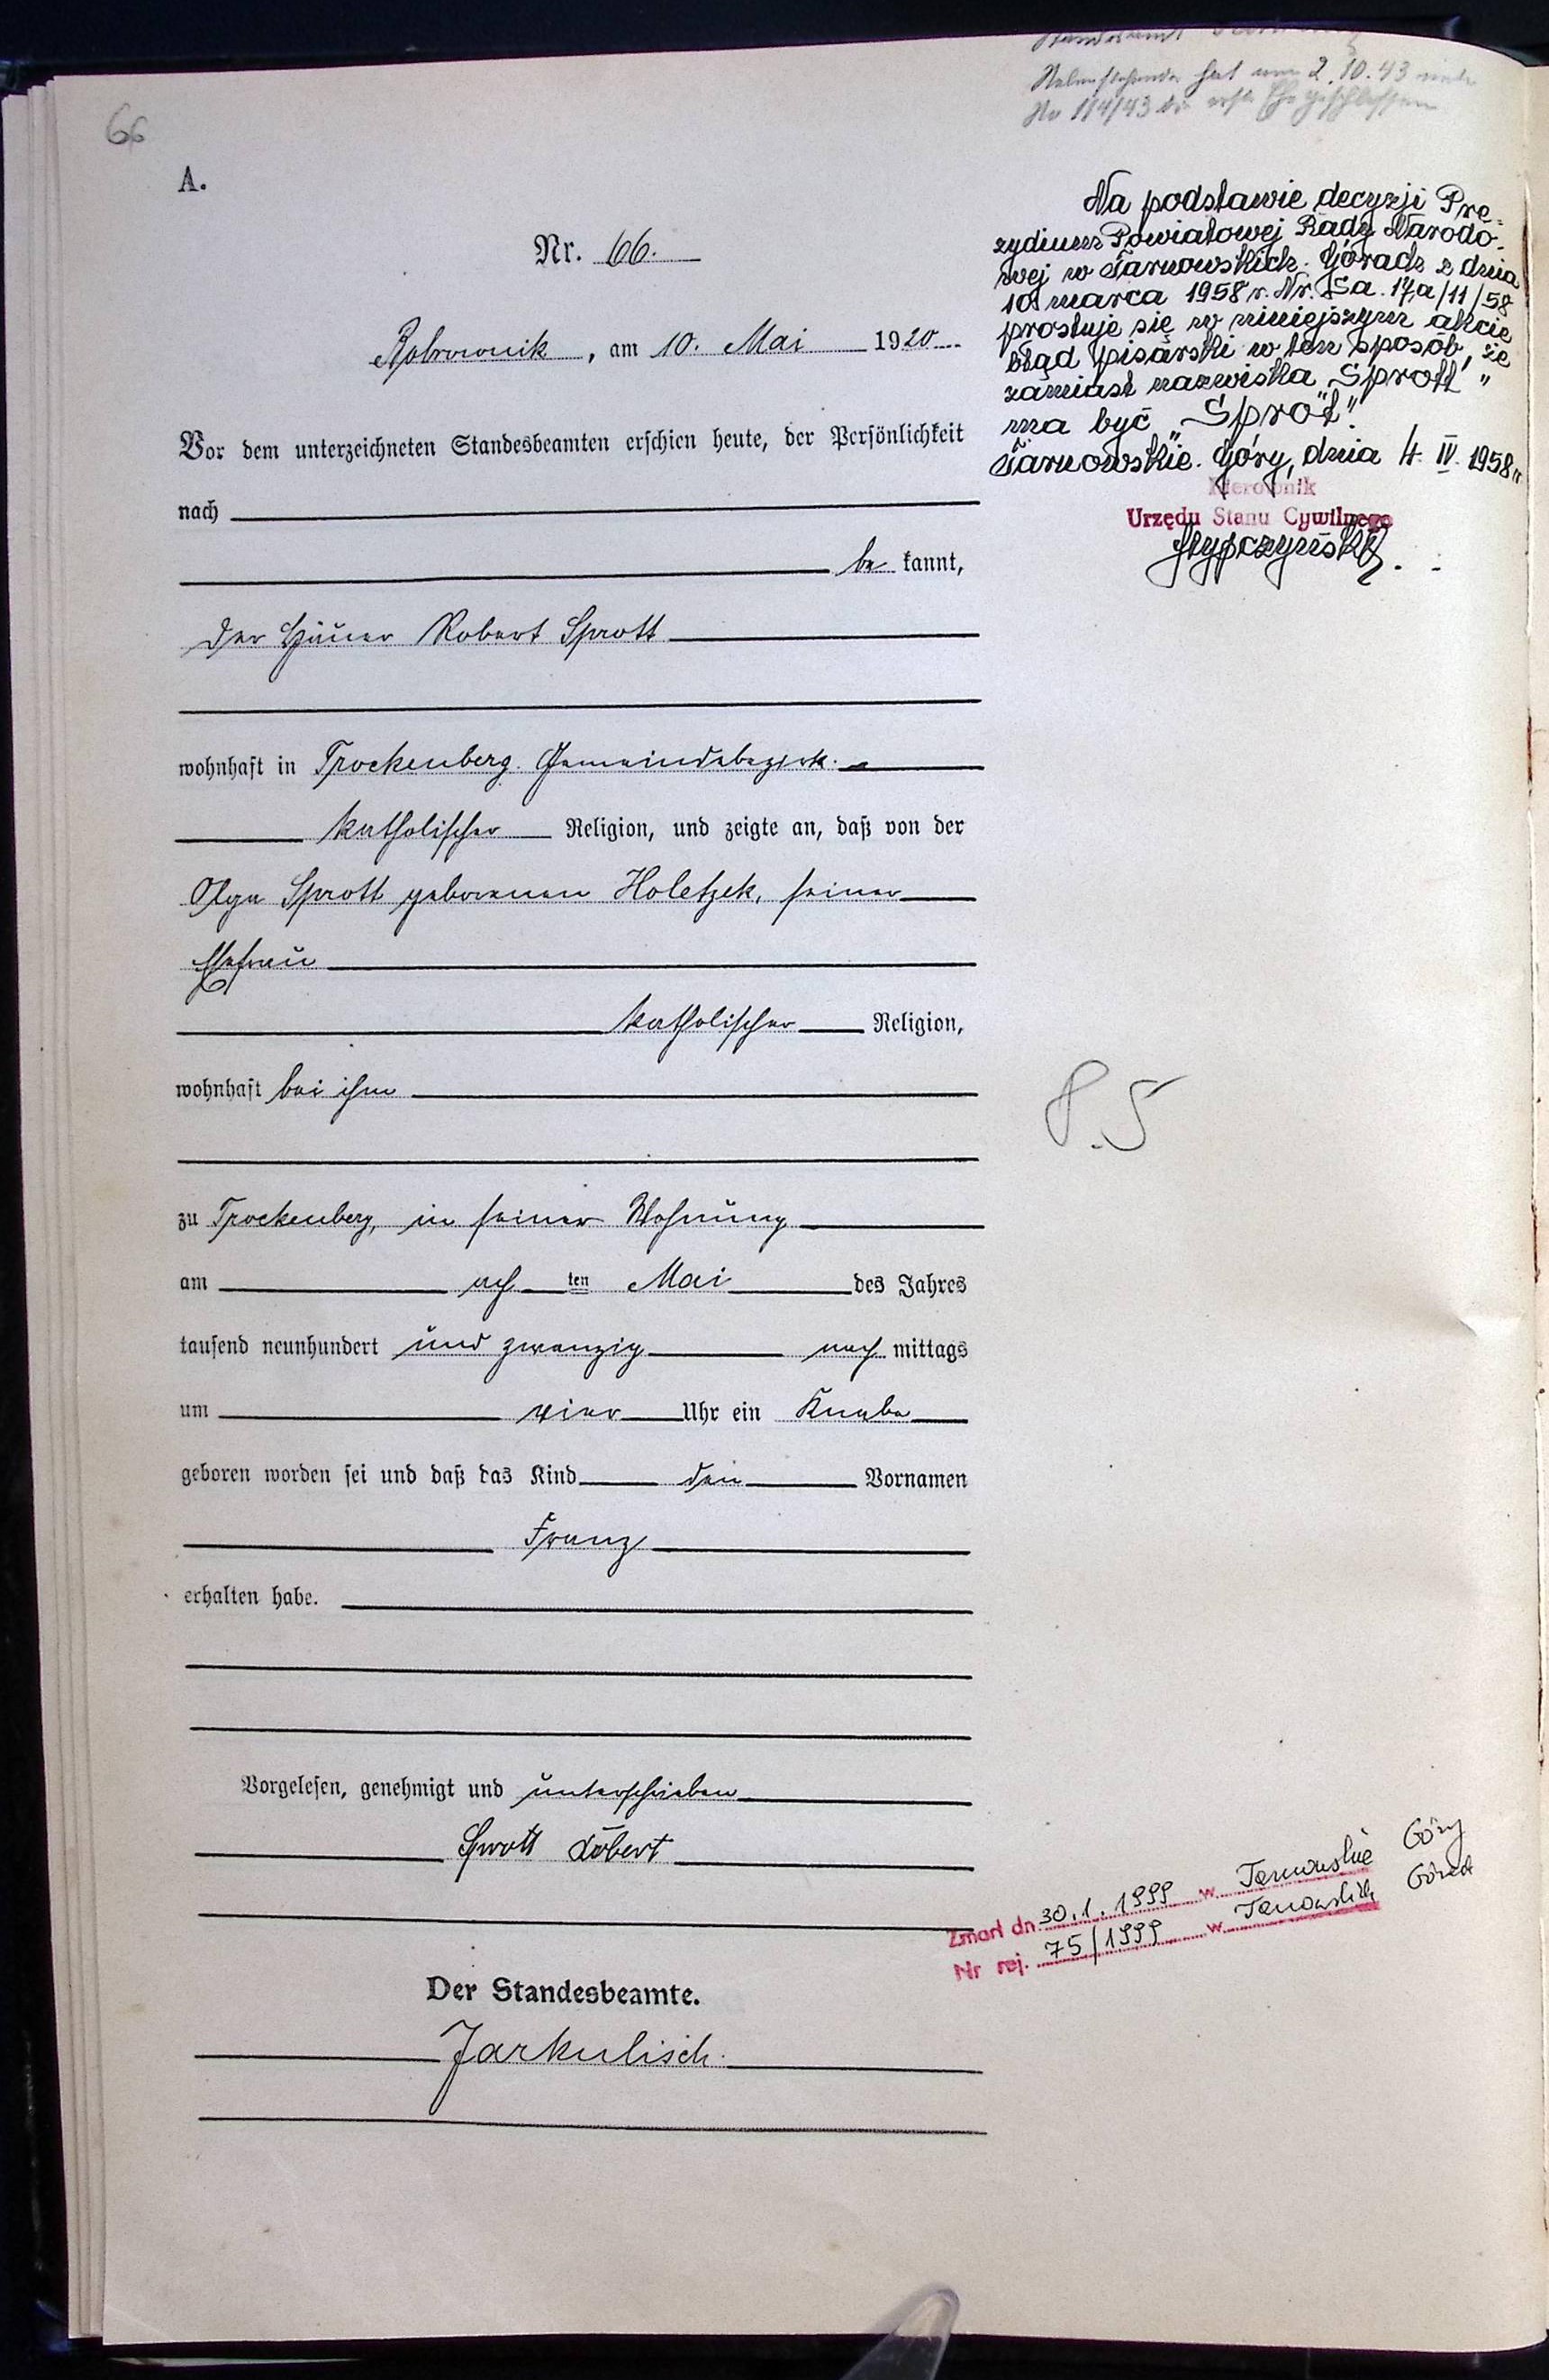 66
A.
Nr. 66.
Bobrownik, am 10. Mai 1920
Vor dem unterzeichneten Standesbeamten erschien heute, der Persönlichkeit
nach
be kannt,
der Häuer Robert Sprott
wohnhaft in Trockenberg Gemeindebezirk.
katholischer Religion, und zeigte an, daß von der
Olga Sprott geborenen Holetzek, seiner
Ehefrau
katholischer Religion,
wohnhaft bei ihm
zu Trockenberg, in seiner Wohnung
am ach ten Mai des Jahres
tausend neunhundert und zwanzig nach mittags
um vier Uhr ein Knabe
geboren worden sei und daß das Kind den Vornamen
Franz
erhalten habe.
Vorgelesen, genehmigt und unterschrieben
Sprott Robert
Der Standesbeamte.
Jarkulisch.
Standesamt
Nebenstehender hat am 2.10.43
No 114/43 die erste Ehe geschlossen
Na podstawie decyzji Pre-
zydium Powiatowej Rady Narodo-
wej w Tarnowskich-Górach z dnia
10 marca 1958 r. Nr. Sa. 17a/11/58
prostuje się w niniejszym akcie
błąd pisarski w ten sposób, że
zamiast nazwiska „Sprott"
ma być „Spröt".
Tarnowskie-Góry, dnia 4. IV. 1958 r.
Kierownik
Urzędu Stanu Cywilnego
8.5
Zmarł dn. 30.1.1999 w Tarnowskie Góry
Nr rej. 75/1999 w Tarnowskich Górach